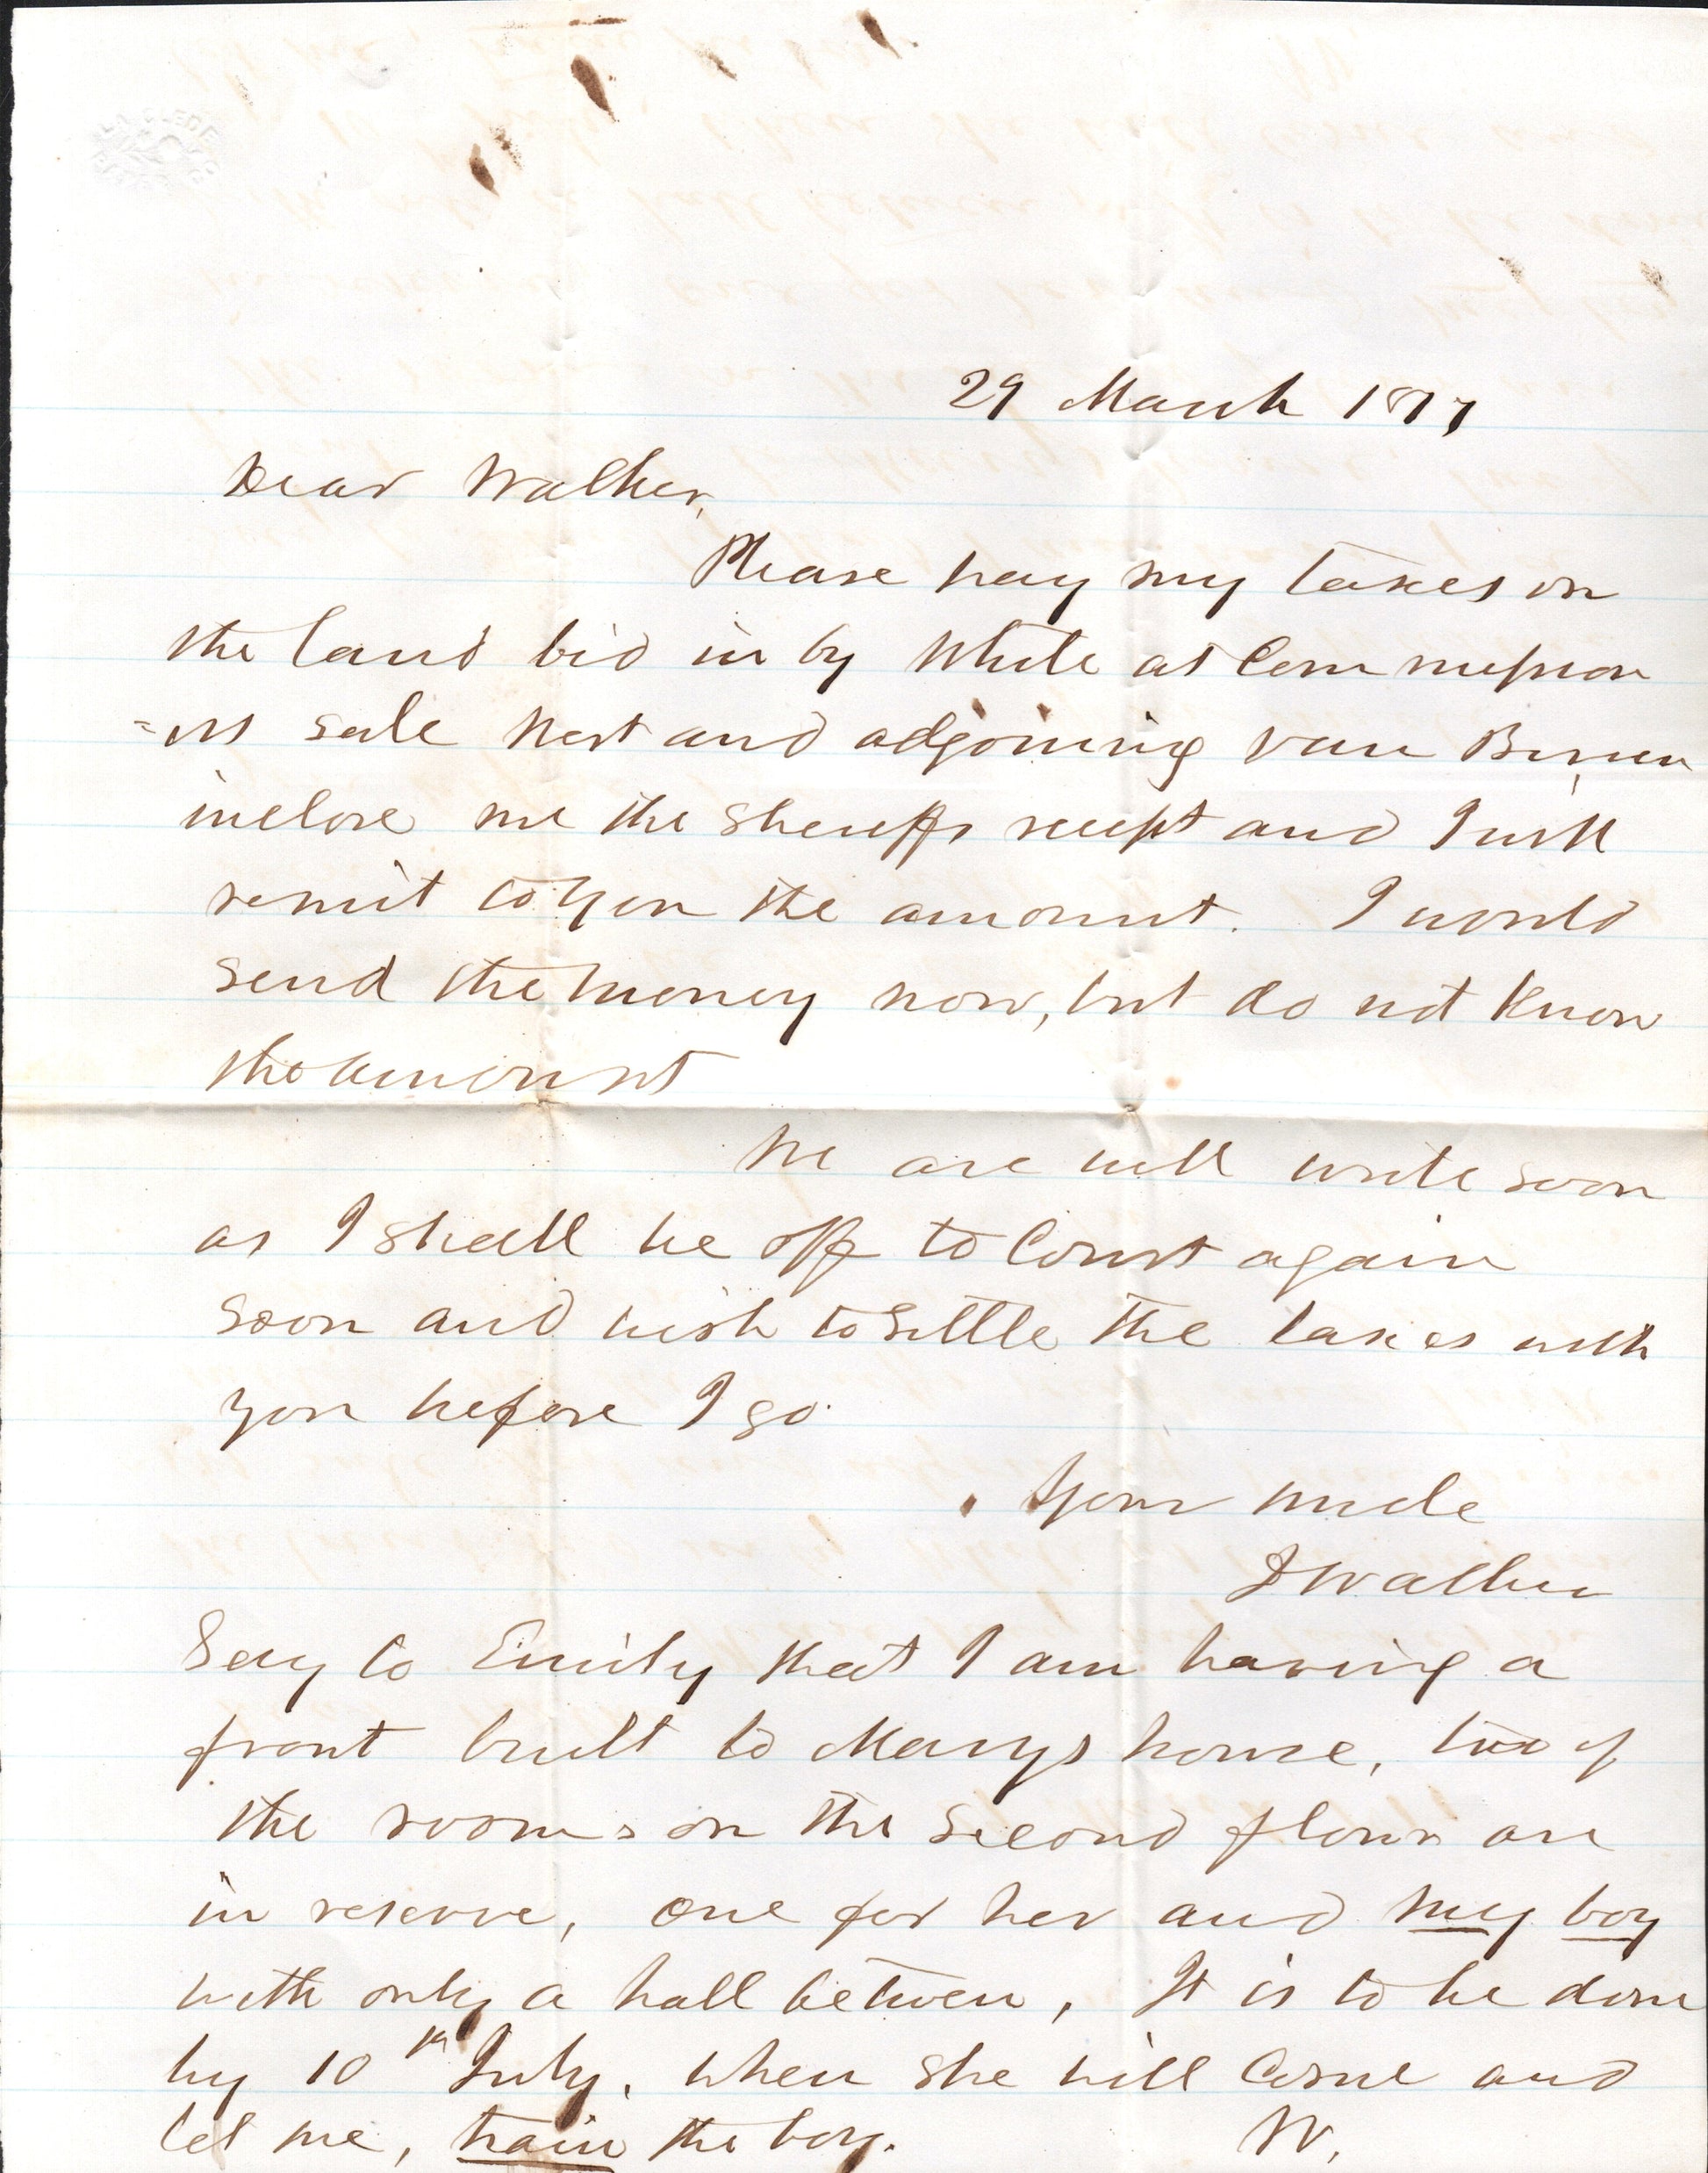 29 March 1877
Dear Walker,
Please pay my taxes on
the land bid in by White at Commission
=ers sale West and adjoining Van Buren
inclose me the Sheriffs receipt and I will
remit to you the amount. I would
send the money now, but do not know
the amount
We are well write soon
as I shall be off to Court again
soon and wish to settle the taxes with
you before I go.
Your uncle
J Walker
Say to Emily that I am having a
front built to Marys house, two of
the rooms on the second floor are
in reserve, one for her and my boy
with only a hall between, It is to be done
by 10th July, when she will come and
let me, train the boy.
W.